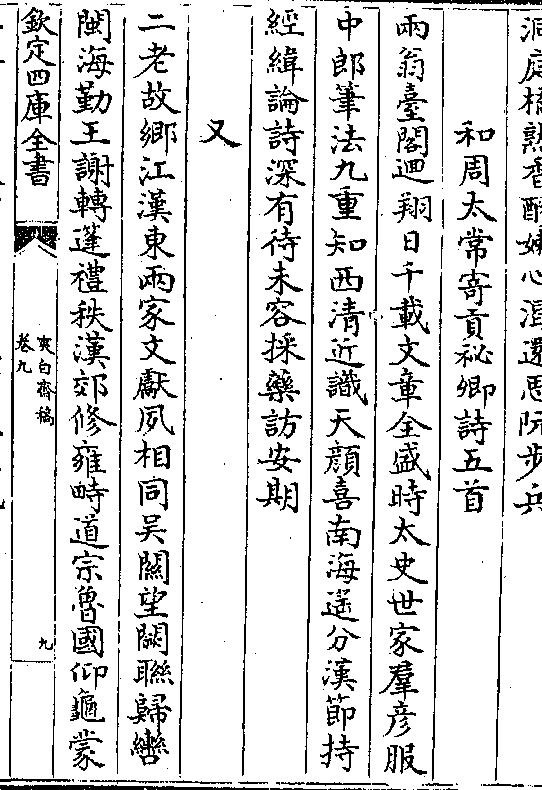 洞庭橘熟香醪
步兵
和周太常寄貢秘卿詩五首
兩翁臺閣迴翔日千載文章全盛時太史世家羣彦服
中郎筆法九重知西清近識天顔喜南海遥分漢節持
經緯論詩深有待未容採藥訪安期
又
二老故鄉江漢東兩家文獻夙相同吴關望闕聯歸轡
閩海勤王謝轉蓬禮秩漢郊修雍畤道宗魯國仰龜蒙
欽定四庫全書
夾白齋稿
卷九
九